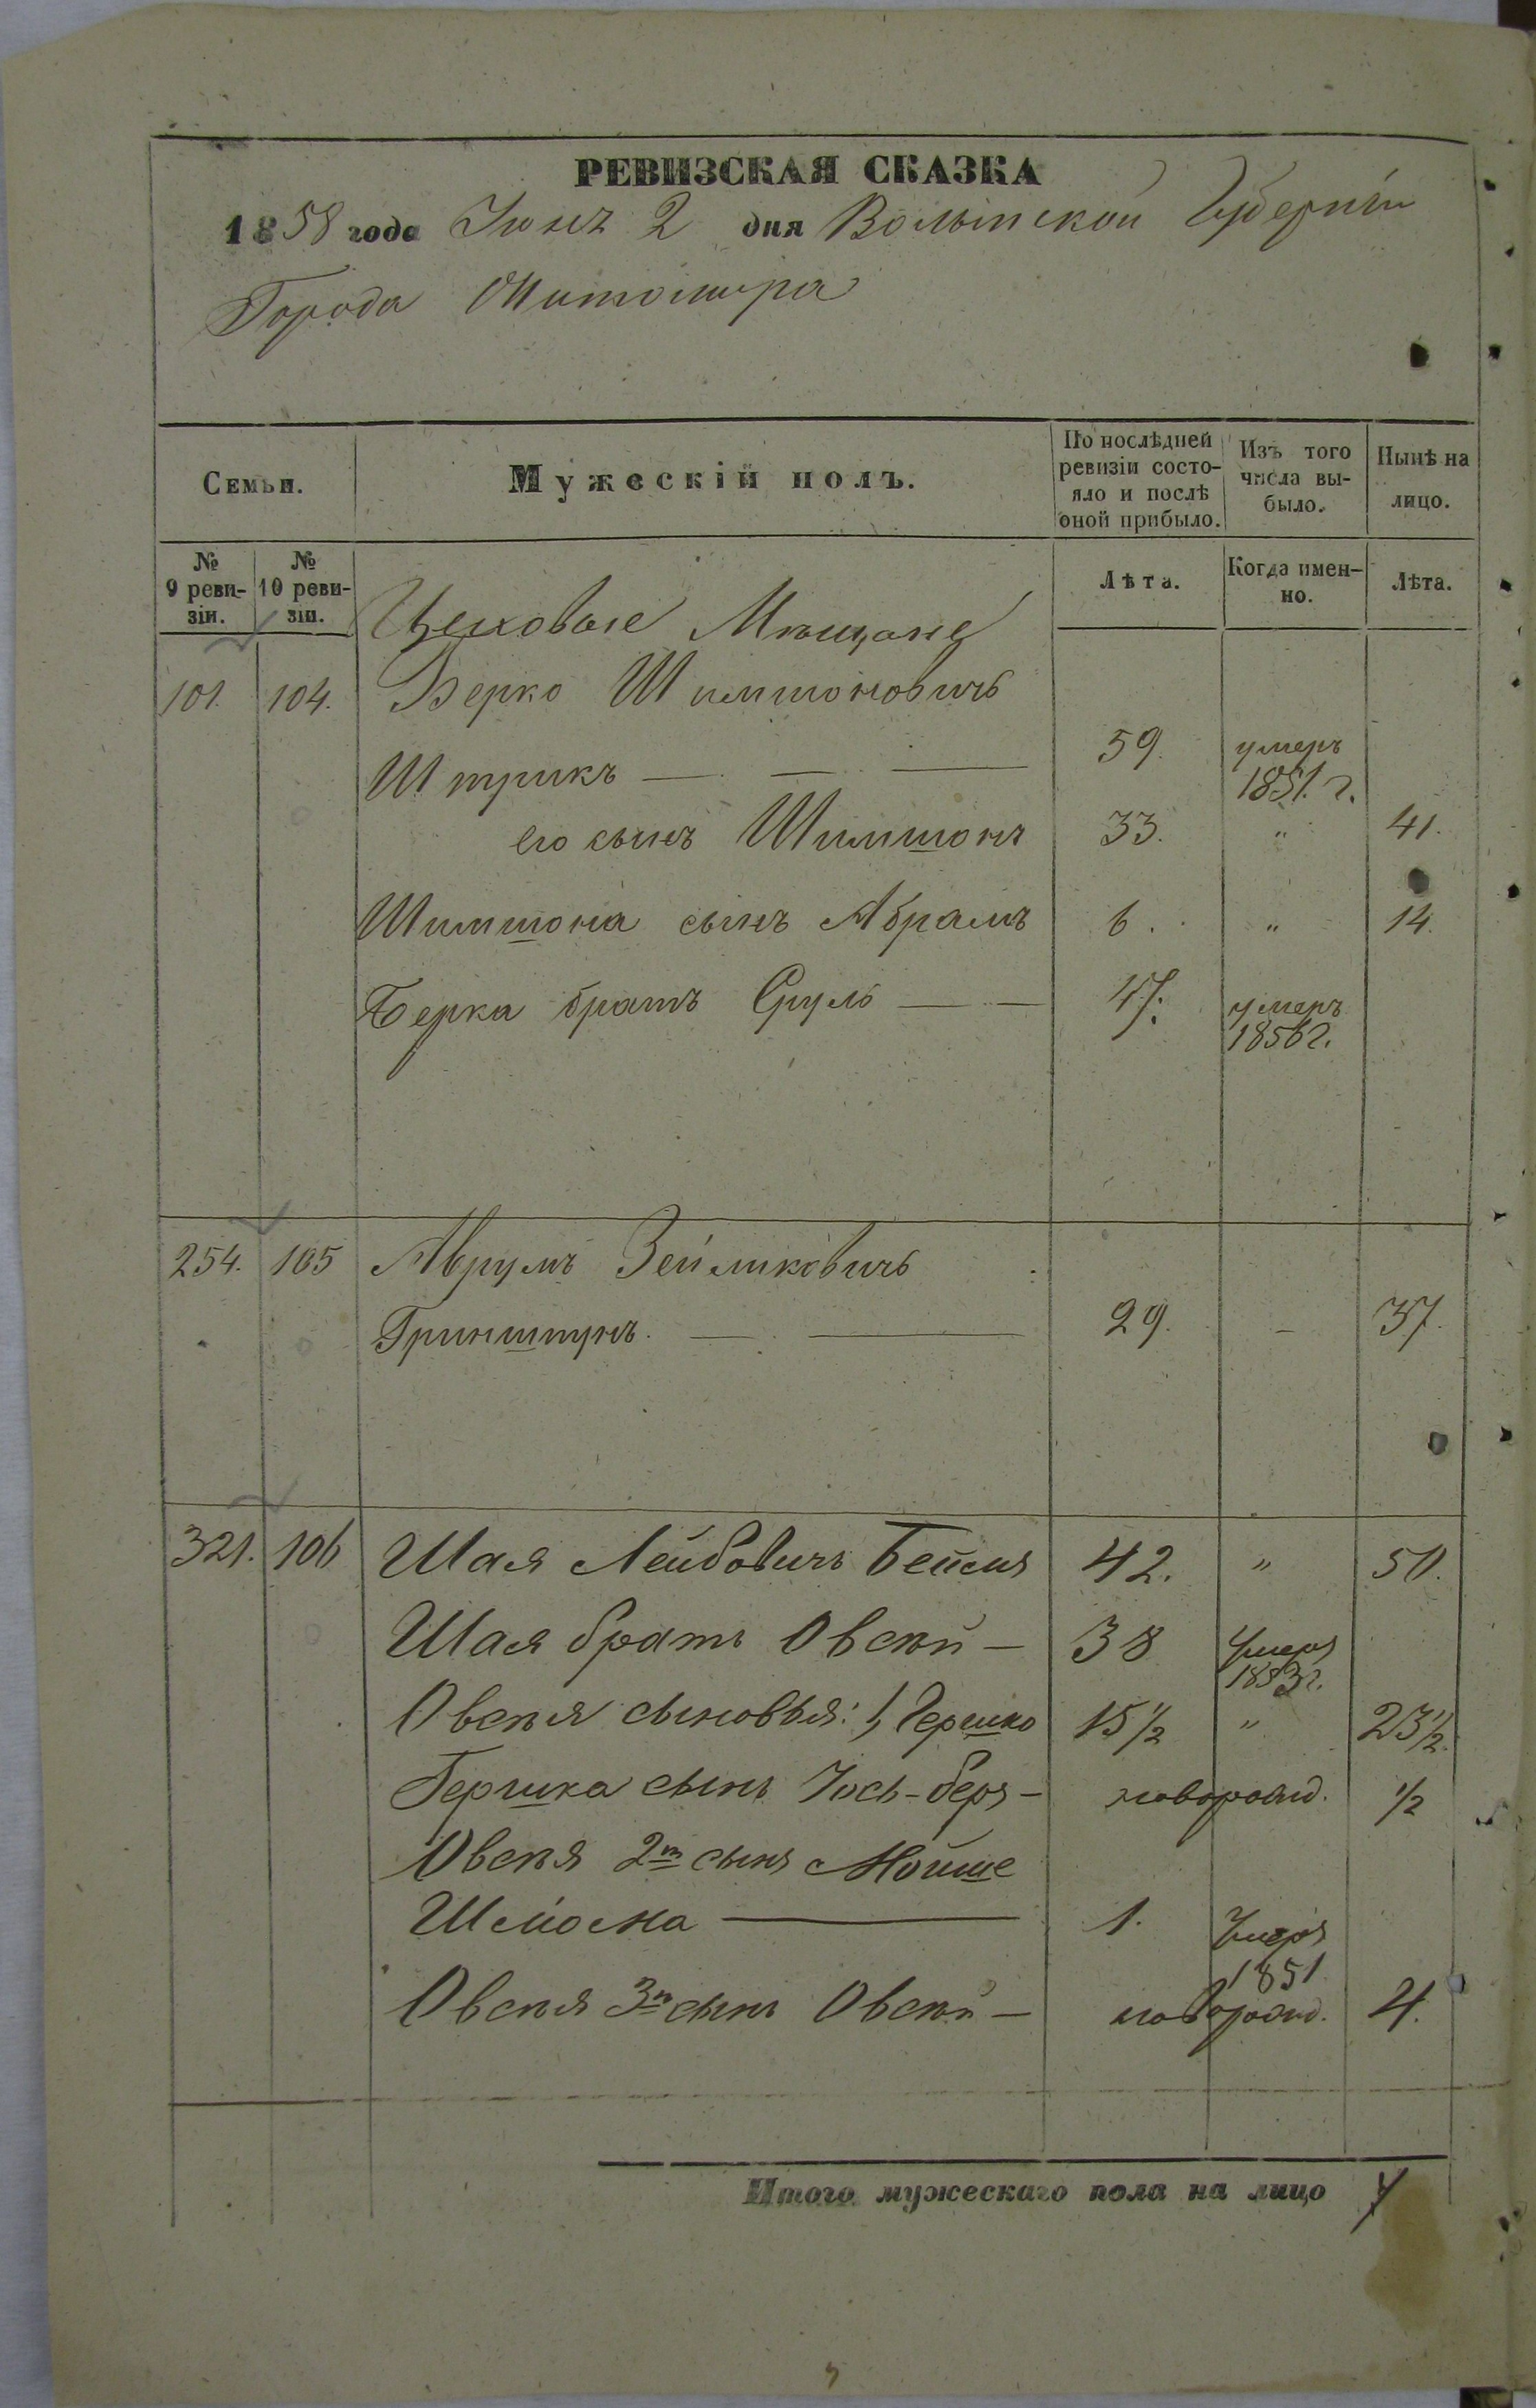 РЕВИЗСКАЯ СКАЗКА
1858 года Іюнь 2 дня Волынской Губерніи
Города Житомира
Семьи.
Мужескій полъ.
По послѣдней ревизіи состо-
яло и послѣ
оной прибыло.
Изъ того
числа вы-
было.
Нынѣ на
лицо.
№
9 реви-
зіи.
№
10 реви-
зіи.
Лѣта.
Когда имен-
но.
Лѣта.
Цеховые Мѣщане
101. 104. Берко Шимшоновичъ
Штрикъ — — — 59. умеръ
1851. г.
его сынъ Шимшонъ 33. " 41.
Шимшона сынъ Абрамъ 6. " 14.
Берка братъ Сруль — — 47. умеръ
1856 г.
254. 105 Аврумъ Зейликовичъ
Гринштунъ. — — 29. — 37.
321. 106 Шая Лейбовичъ Бейлъ 42. " 50.
Шая братъ Овсѣй — 38 Умеръ
1853 г.
Овсѣя сыновья: 1, Гершко 15 1/2 " 23 1/2.
Гершка сынъ Іось-беръ — новорожд. 1/2
Овсѣя 2й сынъ Мойше
Шлйома — 1. Умеръ
1851
Овсѣя 3й сынъ Овсѣй — новорожд. 4.
Итого мужескаго пола на лицо 7